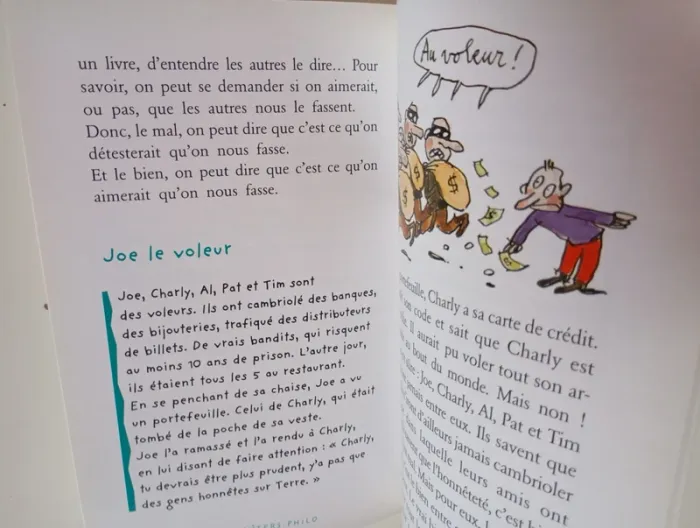 un livre, d'entendre les autres le dire... Pour
savoir, on peut se demander si on aimerait,
ou pas, que les autres nous le fassent.
Donc, le mal, on peut dire que c'est ce qu'on
détesterait qu'on nous fasse.
Et le bien, on peut dire que c'est ce qu'on
aimerait qu'on nous fasse.
Joe le voleur
Joe, Charly, Al, Pat et Tim sont
des voleurs. Ils ont cambriolé des banques,
des bijouteries, trafiqué des distributeurs
de billets. De vrais bandits, qui risquent
au moins 10 ans de prison. L'autre jour,
ils étaient tous les 5 au restaurant.
En se penchant de sa chaise, Joe a vu
un portefeuille. Celui de Charly, qui était
tombé de la poche de sa veste.
Joe l'a ramassé et l'a rendu à Charly,
en lui disant de faire attention : « Charly,
tu devrais être plus prudent, y'a pas que
des gens honnêtes sur Terre. »
PHILO
Au voleur !
$
$
$
, Charly a sa carte de crédit.
son code et sait que Charly est
Il aurait pu voler tout son ar-
au bout du monde. Mais non !
: Joe, Charly, Al, Pat et Tim
jamais entre eux. Ils savent que
d'ailleurs jamais cambrioler
dans laquelle leurs amis ont
que l'honnêteté, c'est
Mais pour eux,
le bien entre